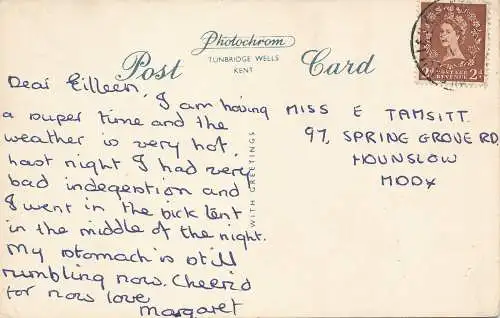 Photochrom
TUNBRIDGE WELLS
KENT
Post Card
Dear Eilleen,
I am having
a super time and the
weather is very hot.
Last night I had very
bad indegestion and
I went in the sick tent
in the middle of the night.
My stomach is still
rumbling now. Cheerid
for now love
Margaret
WITH GREETINGS
MISS E TAMSITT.
97, SPRING GROVE RD
HOUNSLOW
MDDX
POSTAGE
REVENUE
2D